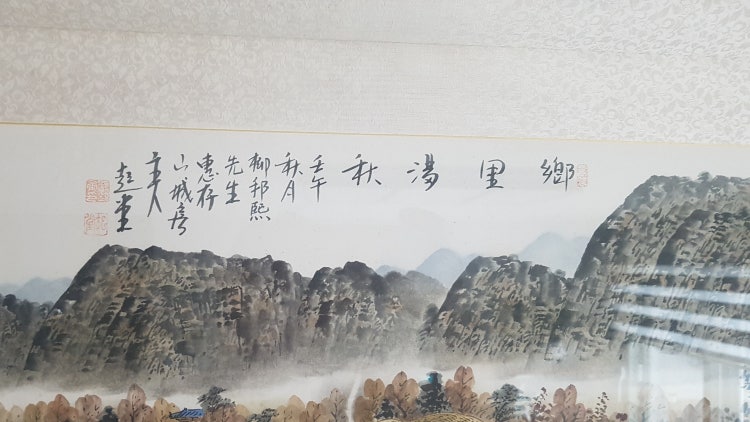 鄉里湯秋
壬午
秋月
柳邦熙
先生
惠存
山城房
主人